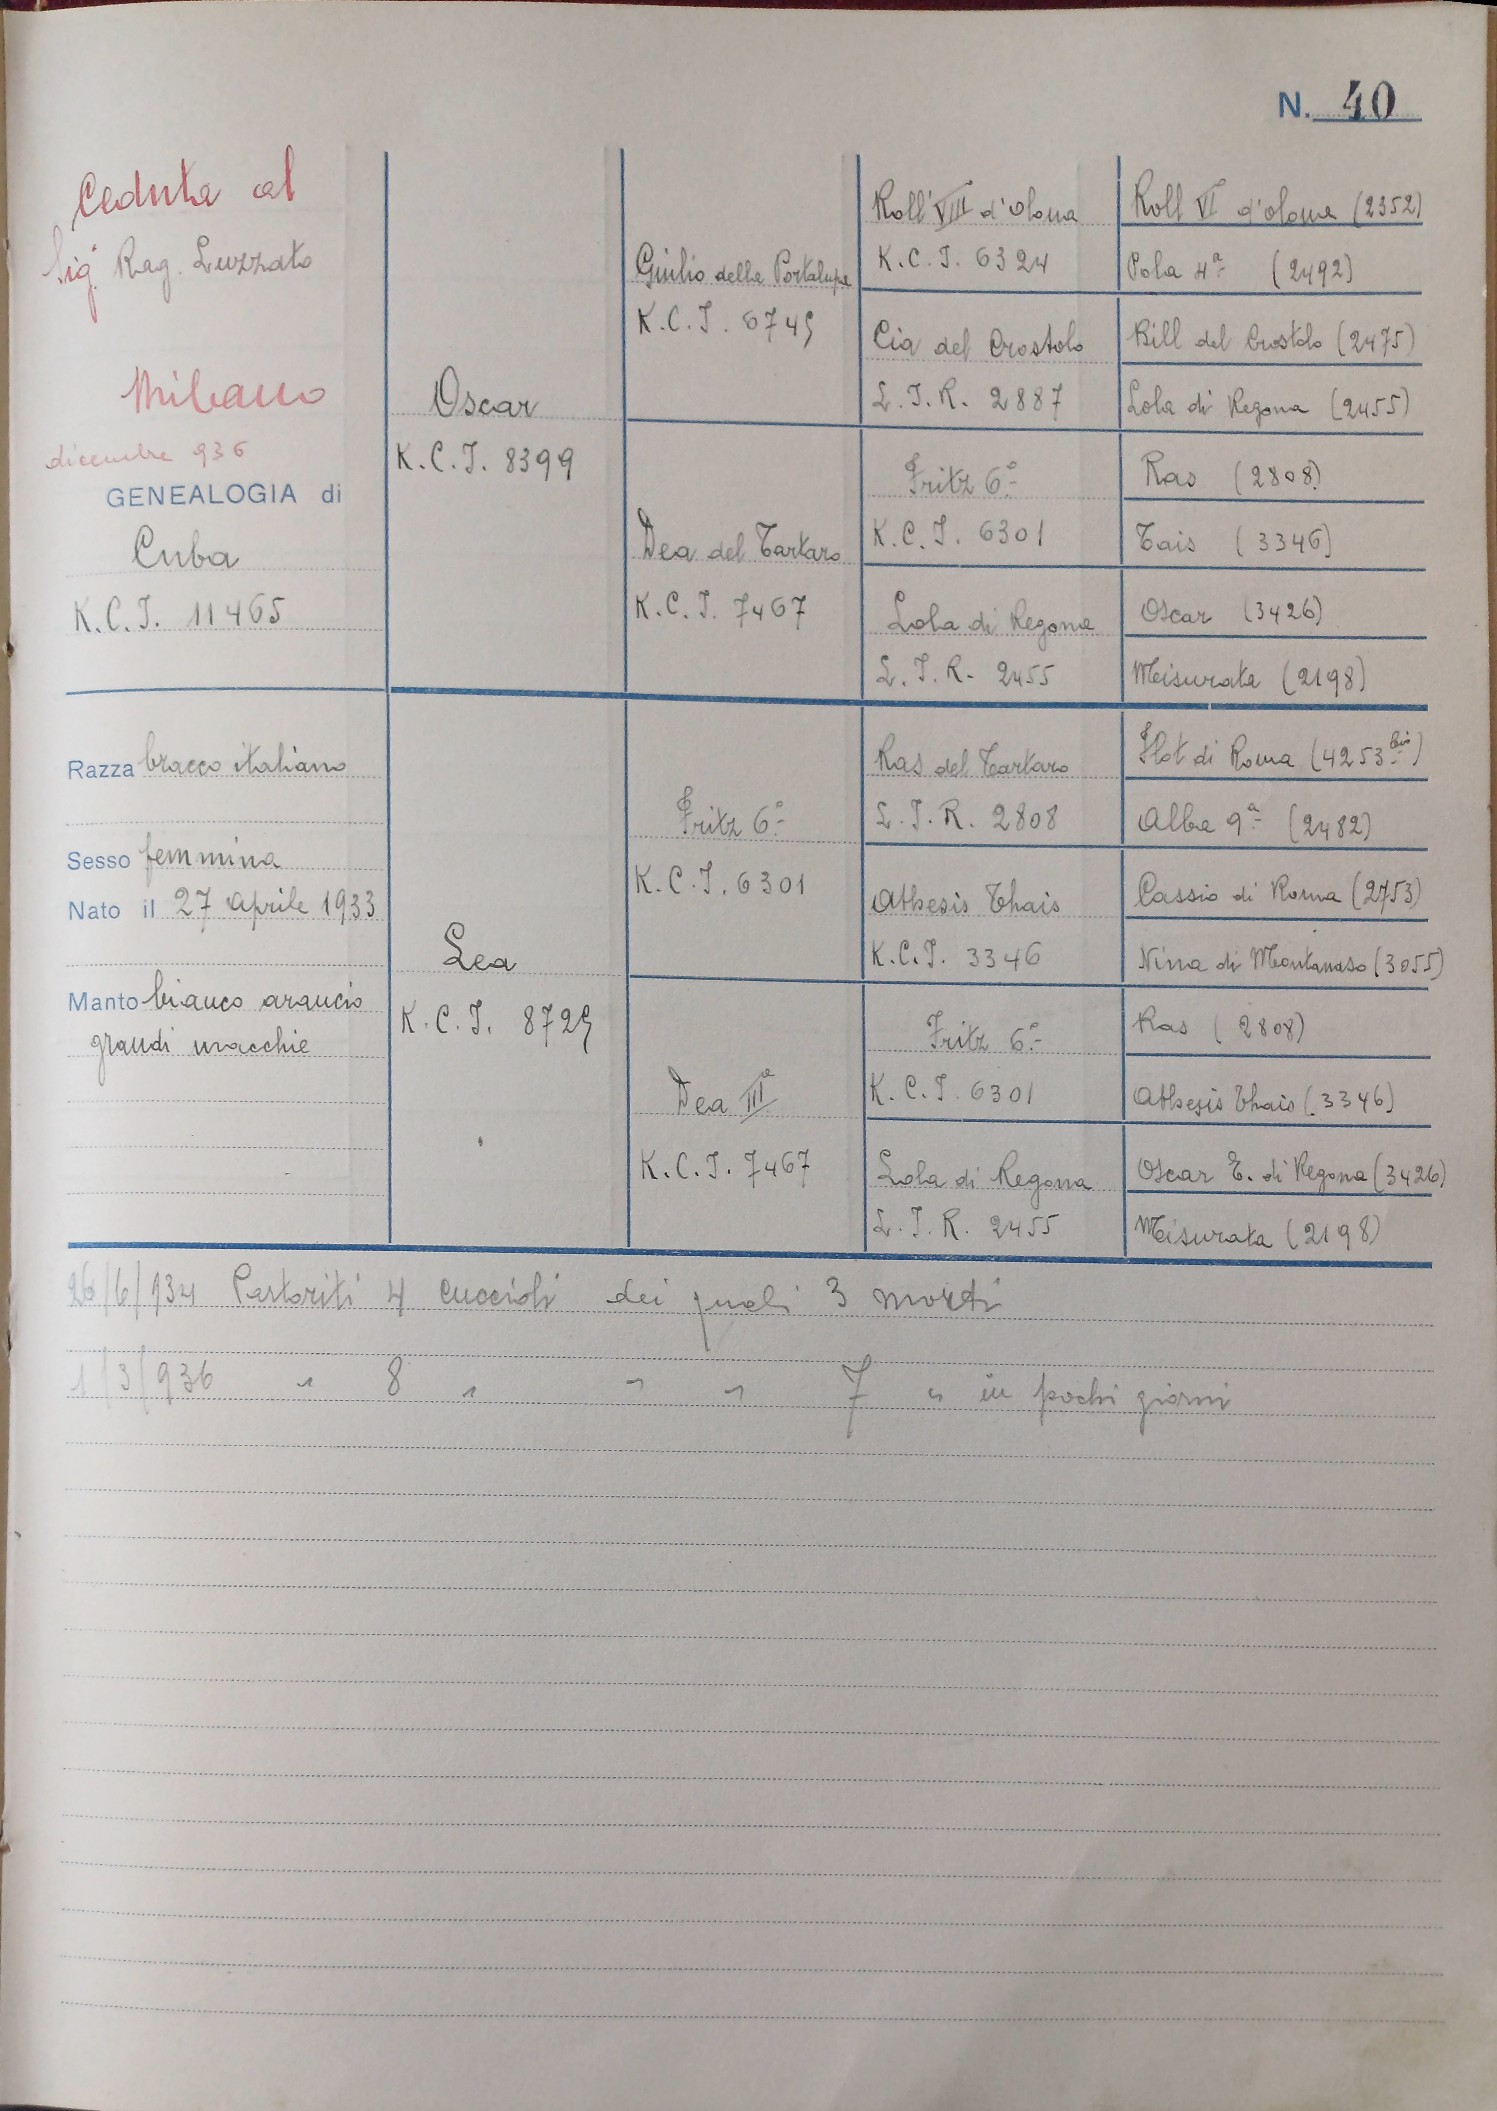 N. 40
Ceduta al
Sig. Rag. Luzzato
Milano
dicembre 936
GENEALOGIA di
Cuba
K.C.I. 11465
Razza bracco italiano
Sesso femmina
Nato il 27 aprile 1933
Manto bianco arancio
grandi macchie
Oscar
K.C.I. 8399
Lea
K.C.I. 8729
Giulio della Portalupa
K.C.I. 6749
Dea del Tartaro
K.C.I. 7467
Fritz 6°
K.C.I. 6301
Dea IIIa
K.C.I. 7467
Roll VIII d'Olona
K.C.I. 6324
Cia del Crostolo
L.I.R. 2887
Fritz 6°
K.C.I. 6301
Lola di Regona
L.I.R. 2455
Ras del Tartaro
L.I.R. 2808
Athesis Thais
K.C.I. 3346
Fritz 6°
K.C.I. 6301
Lola di Regona
L.I.R. 2455
Roll VI d'olona (2352)
Pola 4a (2492)
Bill del Crostolo (2475)
Lola di Regona (2455)
Ras (2808)
Tais (3346)
Oscar (3426)
Misurata (2198)
Flot di Roma (4253 bis)
Alba 9a (2482)
Cassio di Roma (2753)
Nina di Montanaso (3055)
Ras (2808)
Athesis Thais (3346)
Oscar E. di Regona (3426)
Misurata (2198)
26/6/934 Partoriti 4 cuccioli dei quali 3 morti
1/3/936 " 8 " " " 7 " in pochi giorni